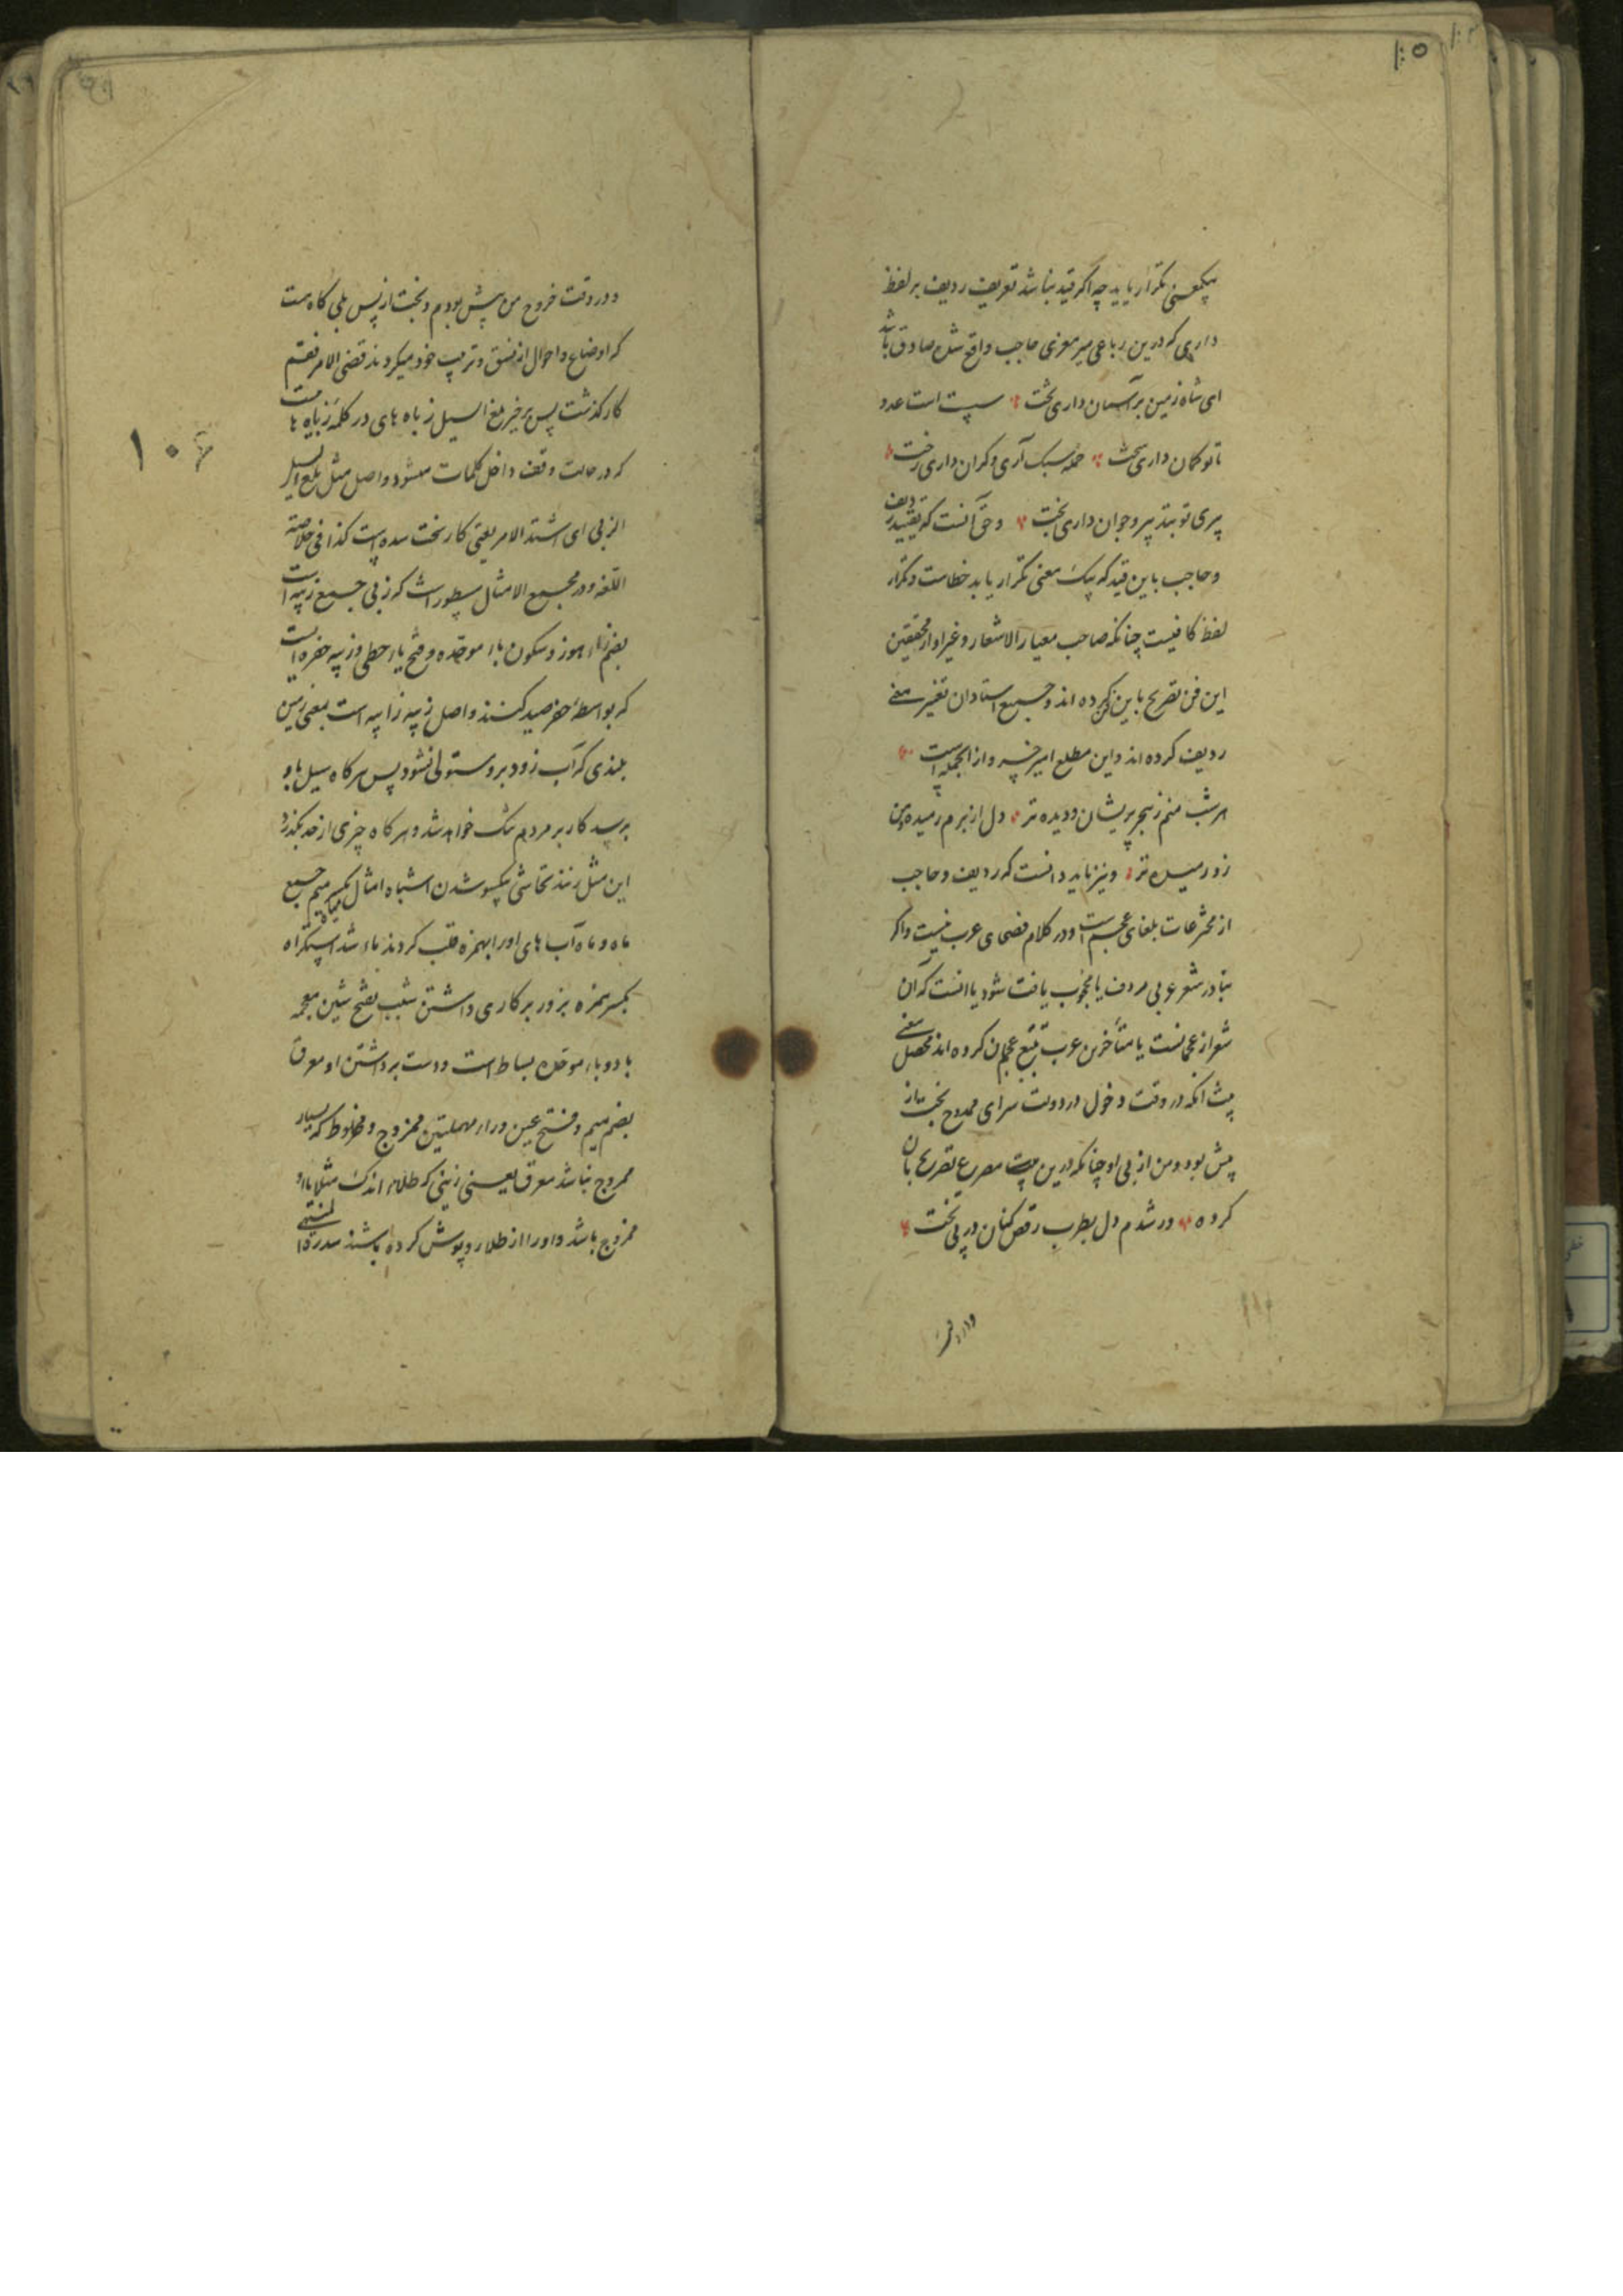 ۱۰۵
بیکمعنی تکرار یابد چه اگر قید نباشد تعریف ردیف بر لفظ
داری که درین رباعی میر معزی حاجب واقع شده صادق باشد
ای شاه زمین بر آسمان داری تخت سست است عدو
تا تو کمان داری سخت حمله سبک آری و گران داری رخت
پیری تو بتدبیر و جوان داری بخت و حق آنست که تقیید ردیف
و حاجب باین قید که بیک معنی تکرار یابد خطاست و تکرار
لفظ کافیست چنانکه صاحب معیار الاشعار و غیر او از محققین
این فن تصریح باین کرده اند و جمیع استادان تغییر معنی
ردیف کرده اند و این مطلع امیر خسرو از آنجمله است
هر شب منم ز هجر پریشان و دیده تر دل از برم رمیده و من
زو رمیده تر و نیز باید دانست که ردیف و حاجب
از مخترعات بلغای عجم است و در کلام فصحای عرب نیست و اگر
نبادر شعر عربی مردف یا محجوب یافت شود یا آنست که آن
شعر از عجمانست یا متأخرین عرب تتبع عجمان کرده اند محصل معنی
بیت آنکه در وقت دخول در دولت سرای ممدوح بخت از
پیش بود و من از پی او چنانکه درین بیت مصرع تصریح بآن
کرده در شدم دل بطرب رقص کنان در پی بخت
و در وقت
۱۰۶
و در وقت خروج من پیش بودم و بخت از پس بلی گاه هست
که اوضاع و احوال از نسق و ترتیب خود میگردند قضی الامر فقم
کار گذشت پس برخیز بلغ السیل زباه های در کلمه زباه ها است
که در حالت وقف داخل کلمات میشود و اصل مثل بلغ السیل
الزبی ای اشتد الامر یعنی کار سخت شده است کذا فی خلاصة
اللغه و در مجمع الامثال مسطور است که زبی جمیع زبیه است
بضم زاء هوز و سکون باء موحده و فتح یاء حطی و زبیه حفره است
که بواسطه حفر صید کنند و اصل زبیه زابیه است بمعنی زمین
بلندی که آب زود برو مستولی نشود پس هرگاه سیل باو
برسد کار بر مردم تنگ خواهد شد و هر گاه چیزی از حد بگذرد
این مثل زنند تحاشی یکسو شدن اشباه امثال میاه بکسر میم جمع
ماه و ماه آب های او را بهمزه قلب کردند ماء شد استکراه
بکسر همزه بزور بر کاری داشتن شبب بفتح شین معجمه
با دو باء موحده بساط است و دست برداشتن او معرق
بضم میم و فتح عین و راء مهملتین ممزوج و مخلوط که بسیار
ممزوج نباشد معرق یعنی زینی که طلاء اندک مثلا با او
ممزوج باشد و او را از طلا روپوش کرده باشند سدرة المنتهی